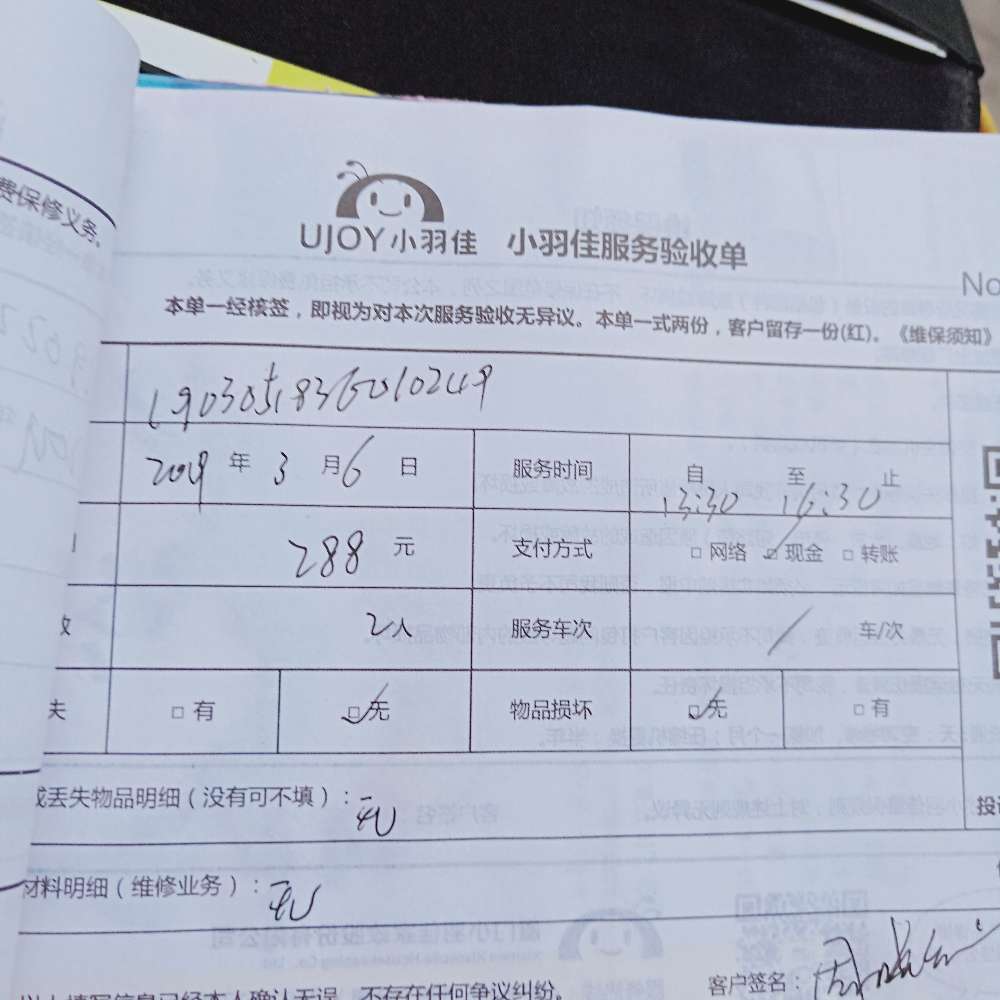 费保修义务。
UJOY小羽佳 小羽佳服务验收单
No
本单一经核签，即视为对本次服务验收无异议。本单一式两份，客户留存一份(红)。《维保须知》
2019 年 3 月 6 日 服务时间 自 13:30 至 16:30 止
288 元 支付方式 □ 网络 ☑ 现金 □ 转账
2人 服务车次 / 车/次
□ 有 ☑ 无 物品损坏 ☑ 无 □ 有
或丢失物品明细（没有可不填）：无
投
材料明细（维修业务）：无
客户签名：
以上填写信息已经本人确认无误，不存在任何争议纠纷。